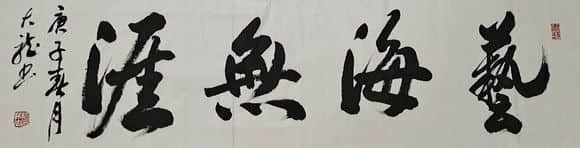 藝海無涯
庚子春月
大龍書